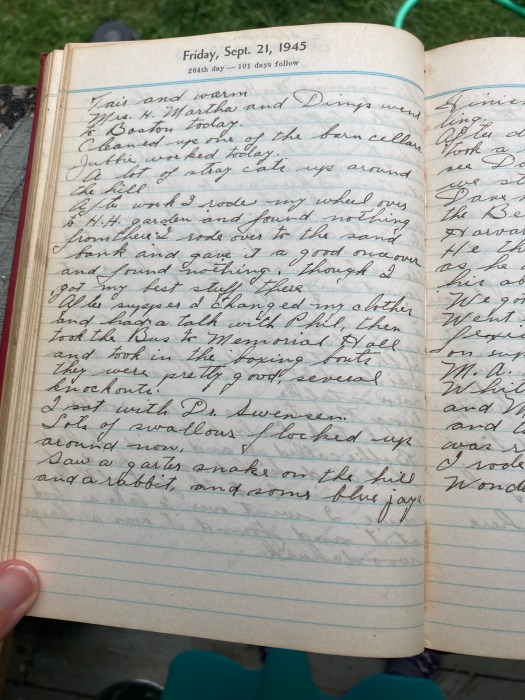 Friday, Sept. 21, 1945
264th day — 101 days follow
Fair and warm
Mrs. H. Martha and Dimps went
to Boston today.
Cleaned up one of the barn cellars
Jubbie worked today.
A lot of stray cats up around
the hill
After work I rode my wheel over
to H.H. garden and found nothing
from there I rode over to the sand
bank and gave it a good onceover
and found nothing. though I
got my best stuff there
After supper I changed my clothes
and had a talk with Phil, then
took the Bus to Memorial Hall
and took in the boxing bouts
they were pretty good, several
knockouts.
I sat with Dr. Swensen.
Lots of swallows flocked up
around now.
Saw a garter snake on the hill
and a rabbit, and some blue jays.
ting.
After
Took a
see
we st
the Be
Harvar
He th
as he
his ab
We go
Went
M. A.
Whil
and
and
was r
I rode
Wonde